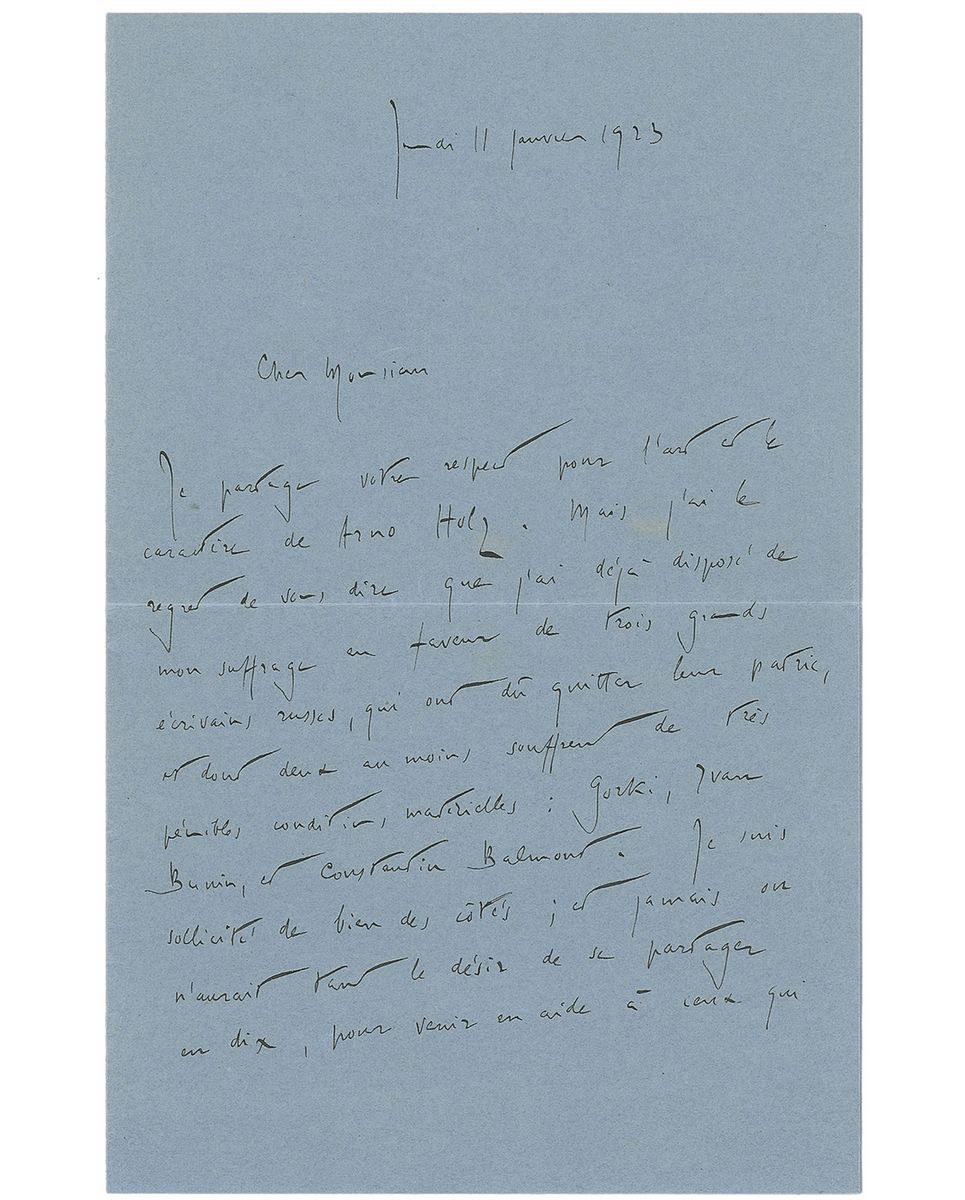 Jeudi 11 janvier 1923
Cher Monsieur
Je partage votre respect pour l'art et le
caractère de Arno Holz. Mais j'ai le
regret de vous dire que j'ai déjà disposé de
mon suffrage en faveur de trois grands
écrivains russes, qui ont dû quitter leur patrie,
et dont deux au moins souffrent de très
pénibles conditions matérielles : Gorki, Ivan
Bunin, et Constantin Balmont. Je suis
sollicité de bien des côtés ; et jamais on
n'aurait tant le désir de se partager
en dix, pour venir en aide à ceux qui